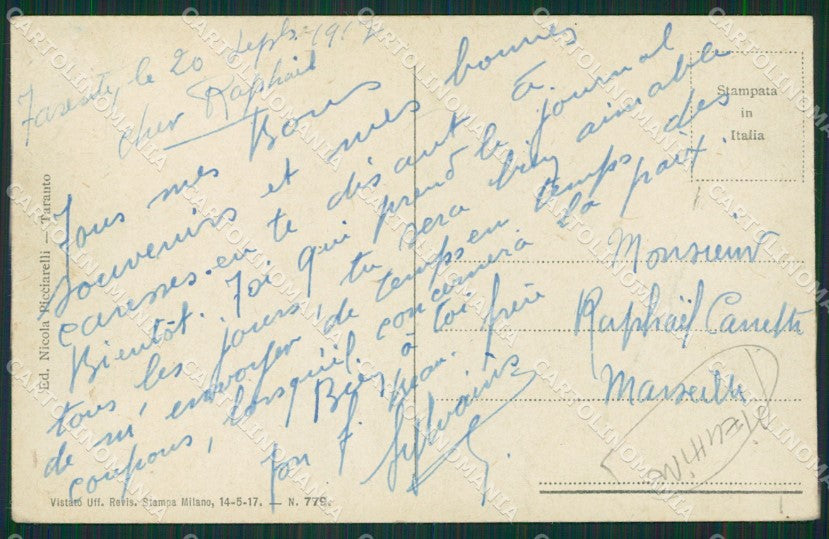 Tarente, le 20 Septbre 1917
cher Raphaël
Tous mes Bons
souvenirs et mes bonnes
caresses. en te disant à
Bientôt. Toi qui prend le journal
tous les jours, tu sera bien aimable
de m'envoyer de temps en temps des
coupons, lorsqu'il concernera la paix.
Bien à toi
Ton F. frère
Sylvain
Monsieur
Raphaël
Marseille
Stampata
in
Italia
Ed. Nicola Ricciarelli — Taranto
Vistato Uff. Revis. Stampa Milano, 14-5-17. — N. 779.
CARTOLINOMANIA